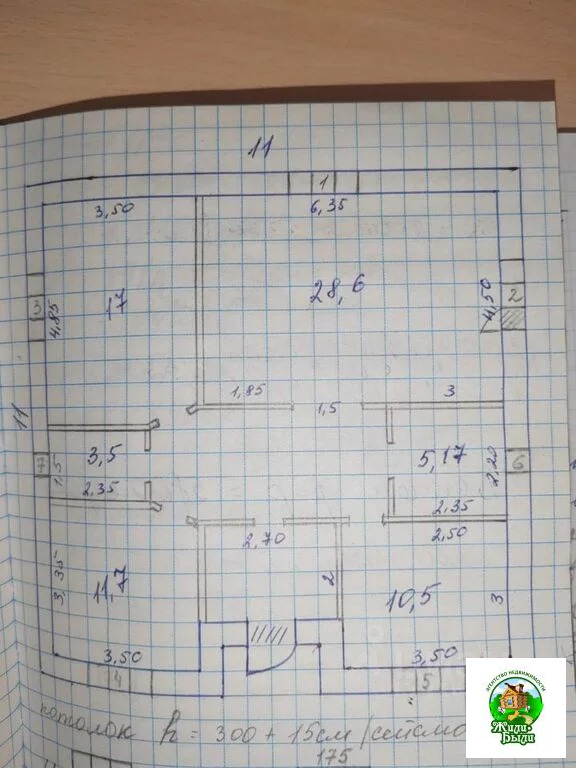 11
1
3,50
6,35
17
28,6
3
4,85
4,50
2
11
1,85
1,5
3
7
1,5
3,5
5,17
2,20
6
2,35
2,35
2,70
2,50
3,35
11,7
2
10,5
3
3,50
3,50
4
5
потолок h = 300 + 15см /сейсмо
175
агентство недвижимости
Жили-Были